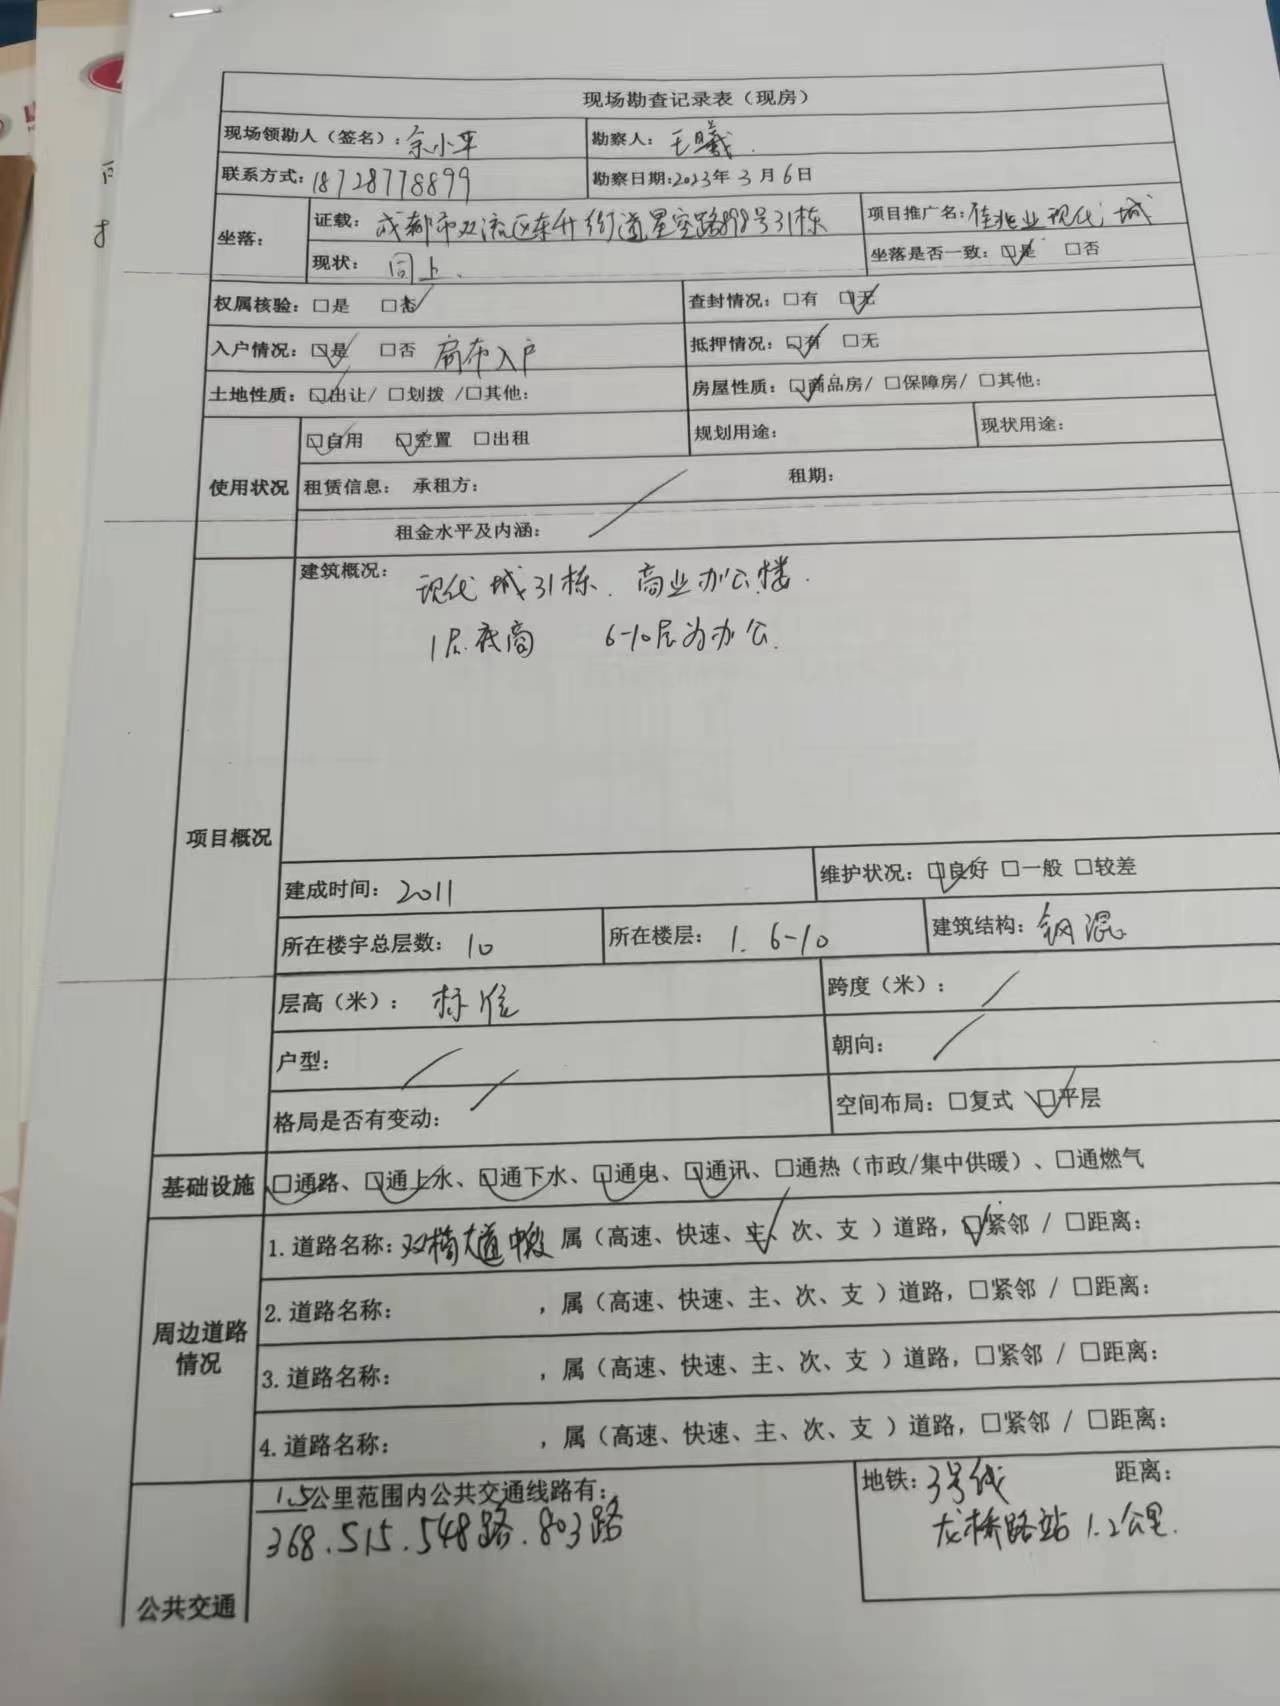 现场勘查记录表（现房）
现场领勘人（签名）：余小平 勘察人：王曦
联系方式：18728778899 勘察日期：2023年3月6日
坐落： 证载：成都市双流区东升街道星空路898号31栋 项目推广名：佳兆业现代城
现状：同上. 坐落是否一致：☑是 □否
权属核验：□是 ☑否 查封情况：□有 ☑无
入户情况：☑是 □否 局部入户 抵押情况：☑有 □无
土地性质：☑出让/ □划拨 /□其他： 房屋性质：☑商品房/ □保障房/ □其他：
使用状况 ☑自用 ☑空置 □出租 规划用途： 现状用途：
租赁信息： 承租方： 租期：
租金水平及内涵：
项目概况 建筑概况：现代城31栋. 商业办公楼.
1层底商 6-10层为办公.
建成时间：2011 维护状况：☑良好 □一般 □较差
所在楼宇总层数：10 所在楼层：1. 6-10 建筑结构：钢混
层高（米）：标准 跨度（米）：/
户型：/ 朝向：/
格局是否有变动：/ 空间布局：□复式 ☑平层
基础设施 ☑通路、☑通上水、☑通下水、☑通电、☑通讯、□通热（市政/集中供暖）、□通燃气
周边道路情况 1.道路名称：双楠大道中段 属（高速、快速、主、次、支 ）道路，☑紧邻 / □距离：
2.道路名称： ，属（高速、快速、主、次、支 ）道路，□紧邻 / □距离：
3.道路名称： ，属（高速、快速、主、次、支 ）道路，□紧邻 / □距离：
4.道路名称： ，属（高速、快速、主、次、支 ）道路，□紧邻 / □距离：
公共交通 1.5公里范围内公共交通线路有： 地铁：3号线 距离：
368.515.548路.803路 龙桥路站 1.2公里.